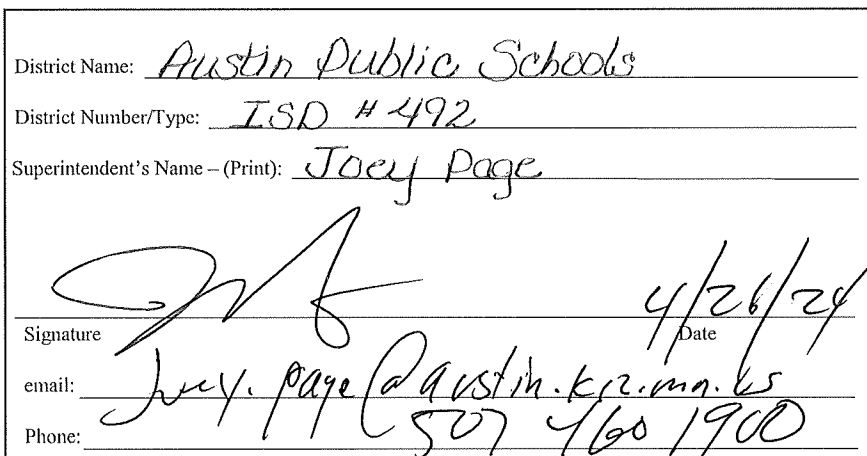 District Name: Austin Public Schools
District Number/Type: ISD # 492
Superintendent's Name – (Print): Joey Page
4/26/24
Signature Date
email: joey.page@austin.k12.mn.us
Phone: 507 460 1900